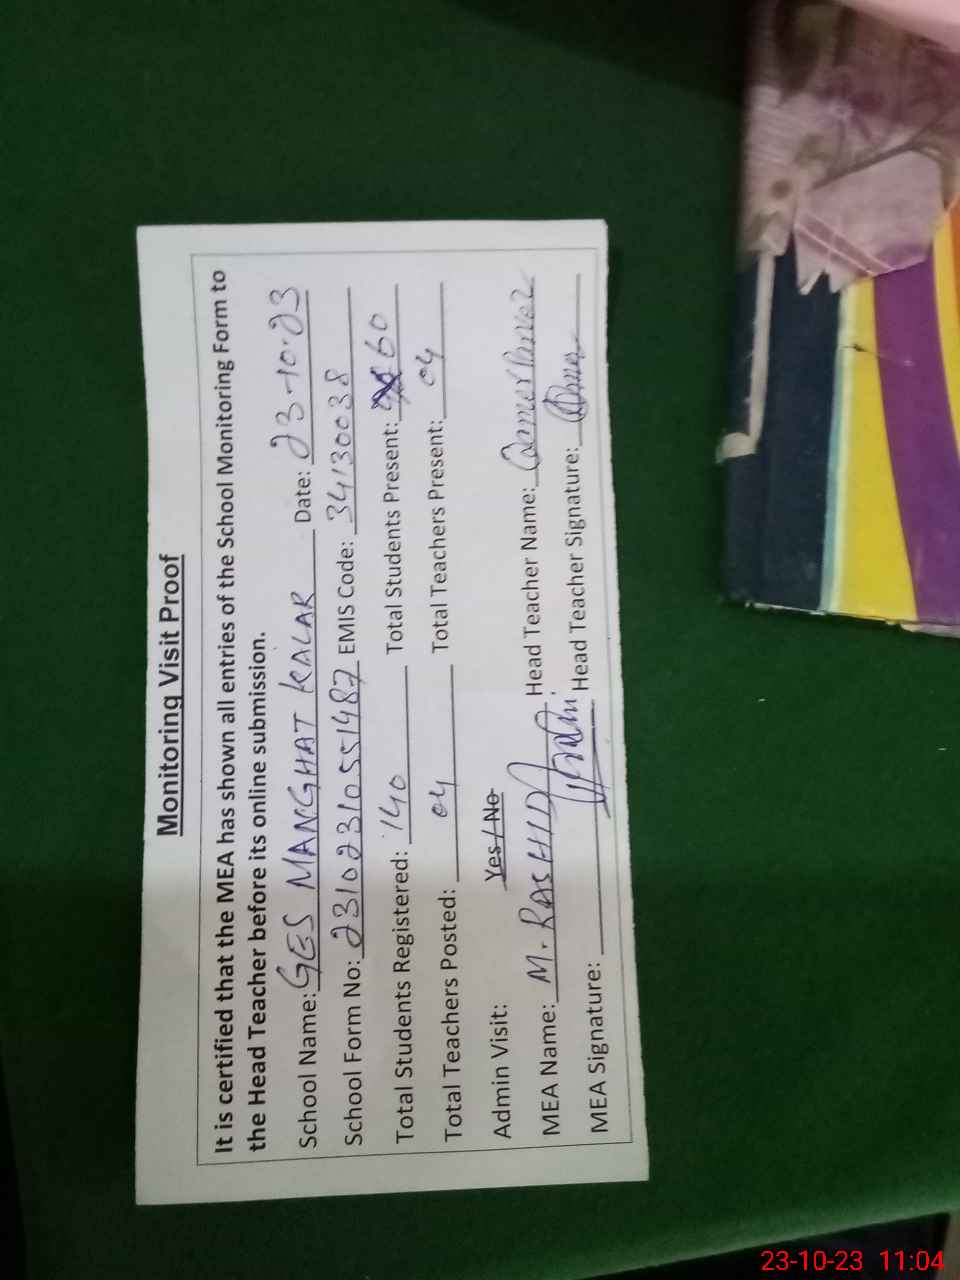 Monitoring Visit Proof
It is certified that the MEA has shown all entries of the School Monitoring Form to
the Head Teacher before its online submission.
School Name: GES MANGHAT KALAR Date: 23-10-23
School Form No: 23102310551487 EMIS Code: 34130038
Total Students Registered: 140 Total Students Present: 60
Total Teachers Posted: 04 Total Teachers Present: 04
Admin Visit: Yes / No
MEA Name: M. RASHID Head Teacher Name: Qamer Parvez
MEA Signature: Head Teacher Signature:
23-10-23 11:04